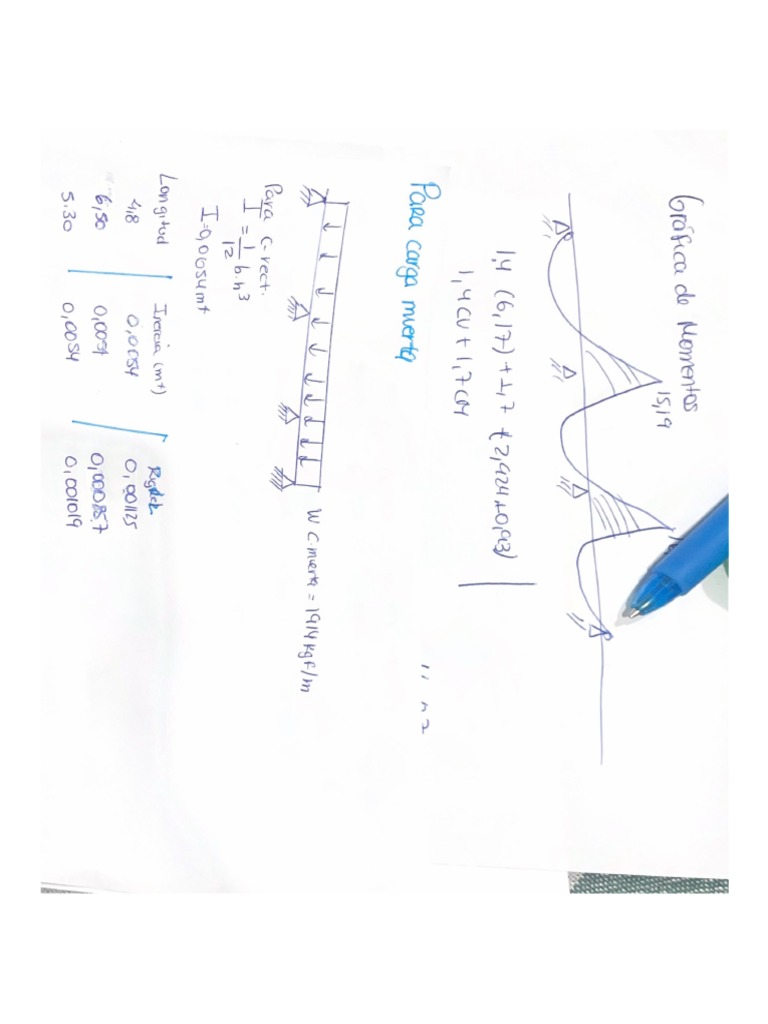 Gráfica de Momentos
15,19
1,4 (6,17) + 1,7 + (2,924+0,93)
1,4CV + 1,7CM
Para carga muerta
W C.muerta = 1914 kgf/m
Para C-rect.
I = 1/12 b.h³
I=0,0054m4
Longitud Inercia (m4) Rigidez
4,8 0,0054 0,001125
6,50 0,0054 0,000857
5.30 0,0054 0,001019